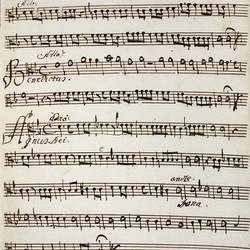 Allo.
Allo.
Benedictus.
Ado.
Agnus Dei.
andte.
Dona.